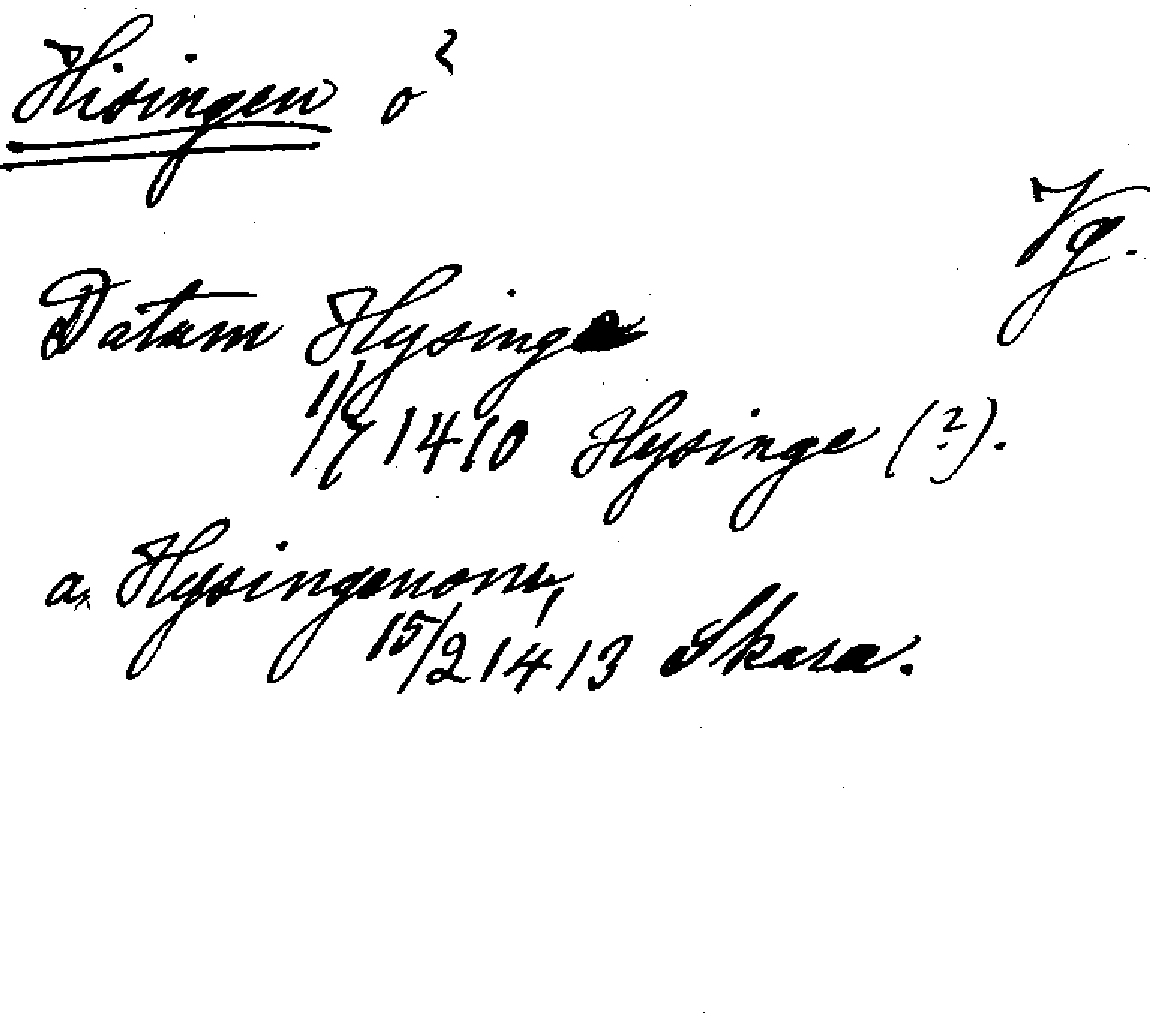 Hisingen ö ²
Vg.
Datum Hysinge
1/7 1410 Hysinge (?).
a, Hysingenom,
15/2 1413 Skara.